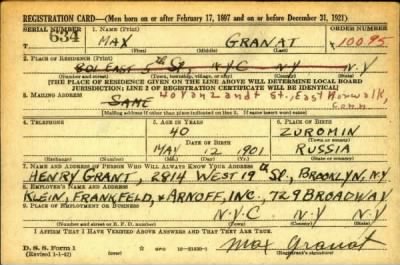 REGISTRATION CARD—(Men born on or after February 17, 1897 and on or before December 31, 1921)
SERIAL NUMBER 1. NAME (Print) ORDER NUMBER
634 MAX GRANAT 10095
(First) (Middle) (Last)
2. PLACE OF RESIDENCE (Print)
801 EAST 5th ST., N.Y.C N.Y
(Number and street) (Town, township, village, or city) (County) (State)
[THE PLACE OF RESIDENCE GIVEN ON THE LINE ABOVE WILL DETERMINE LOCAL BOARD
JURISDICTION; LINE 2 OF REGISTRATION CERTIFICATE WILL BE IDENTICAL]
3. MAILING ADDRESS
SAME Van Zandt St., East Norwalk, Conn.
[Mailing address if other than place indicated on line 2. If same insert word same]
4. TELEPHONE 5. AGE IN YEARS 6. PLACE OF BIRTH
40 ZUROMIN
DATE OF BIRTH (Town or county)
MAY 12 1901 RUSSIA
(Exchange) (Number) (Mo.) (Day) (Yr.) (State or country)
7. NAME AND ADDRESS OF PERSON WHO WILL ALWAYS KNOW YOUR ADDRESS
HENRY GRANT, 2814 WEST 19th ST., BROOKLYN, N.Y
8. EMPLOYER'S NAME AND ADDRESS
KLEIN, FRANKFELD, & ARNOFF, INC., 729 BROADWAY
9. PLACE OF EMPLOYMENT OR BUSINESS
N.Y.C N.Y
(Number and street or R. F. D. number) (Town) (County) (State)
I AFFIRM THAT I HAVE VERIFIED ABOVE ANSWERS AND THAT THEY ARE TRUE.
D. S. S. Form 1
(Revised 1-1-42) GPO 16—21630-1 Max Granat